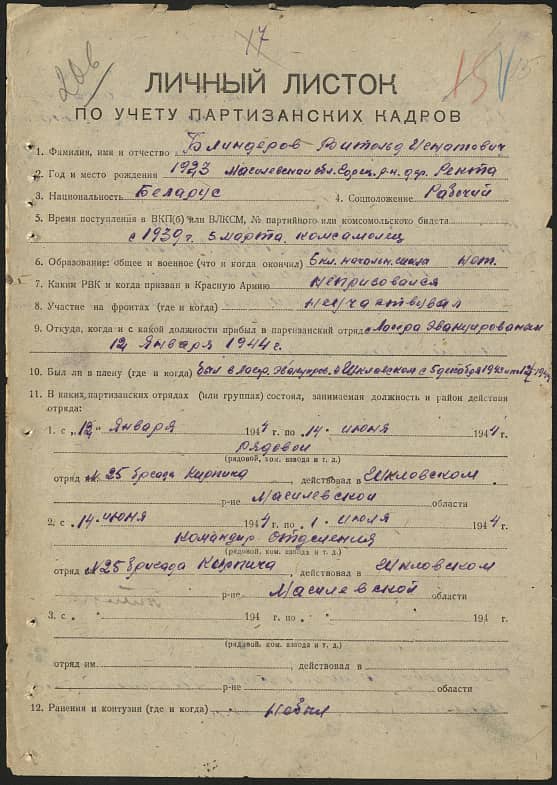 17
206
15 V 15
ЛИЧНЫЙ ЛИСТОК
ПО УЧЕТУ ПАРТИЗАНСКИХ КАДРОВ
1. Фамилия, имя и отчество Блиндеров Витольд Игнатович
2. Год и место рождения 1923 Масилевская обл. Горец. р-н. дер. Рекота
3. Национальность Беларус 4. Соцположение Рабочий
5. Время поступления в ВКП(б) или ВЛКСМ, № партийного или комсомольского билета
с 1939 г. 5 марта. комсамолец
6. Образование: общее и военное (что и когда окончил) 6 кл. начальн. школа
7. Каким РВК и когда призван в Красную Армию непризовался
8. Участие на фронтах (где и когда) неучаствувал
9. Откуда, когда и с какой должности прибыл в партизанский отряд Лагира Эвакуирований
12 Января 1944 г.
10. Был ли в плену (где и когда) был в лагир. Эвакуиров. в Шкловском с 5 декабря 1943
11. В каких партизанских отрядах (или группах) состоял, занимаемая должность и район действия
отряда:
1. с 12 Января 1944 г. по 14 июня 1944 г.
рядовой
(рядовой, ком. взвода и т. д.)
отряд № 25 бригада Кирпича, действовал в Шкловском
р-не Масилевской области
2. с 14 июня 1944 г. по 1 июля 1944 г.
командир Отделения
(рядовой, ком. взвода и т. д.)
отряд № 25 бригада Кирпича, действовал в Шкловском
р-не Масилевской области
3. с 194 г. по 194 г.
(рядовой, ком. взвода и т. д.)
отряд им. действовал в
р-не области
12. Ранения и контузии (где и когда) небыл